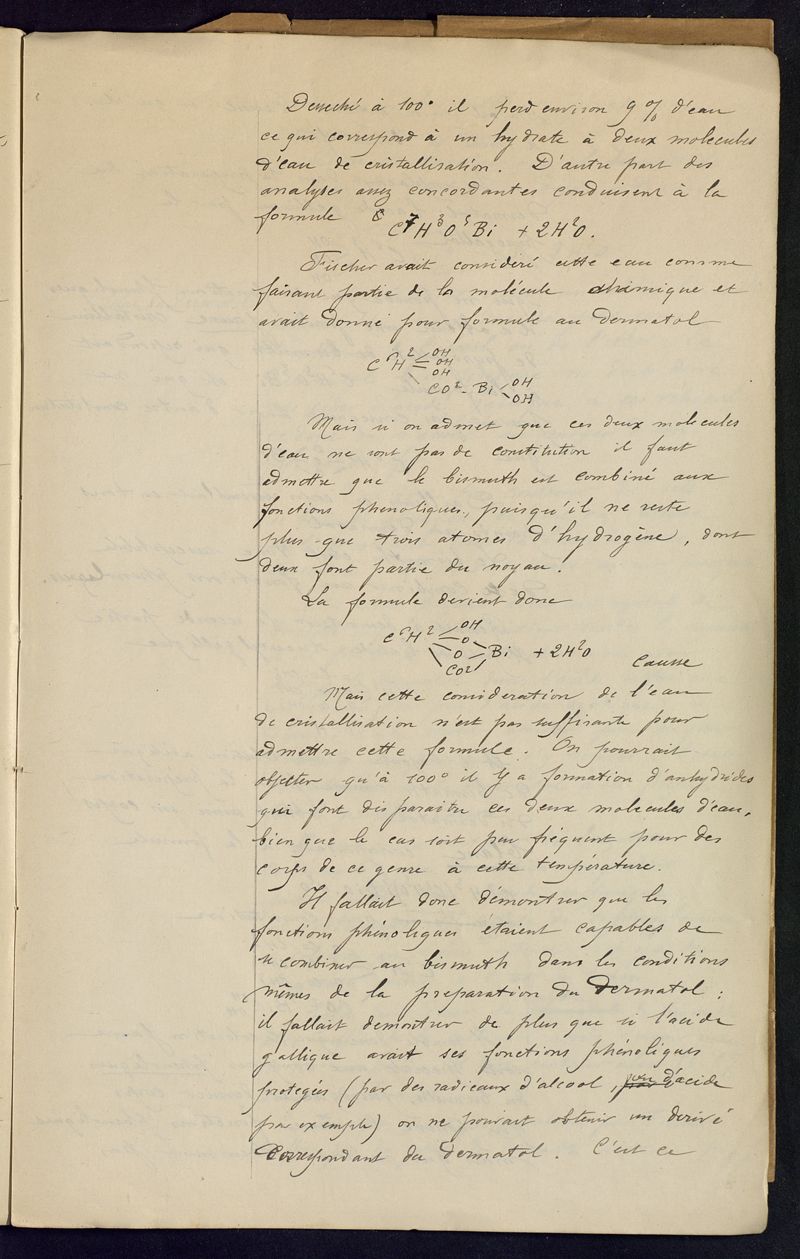 Desseché à 100° il perd environ 9 % d'eau
ce qui correspond à un hydrate à deux molecules
d'eau de cristallisation. D'autre part des
analyses assez concordantes conduisent à la
formule C⁷H³O⁵Bi + 2H²O.
Fischer avait considéré cette eau comme
faisant partie de la molécule chimique et
avait donné pour formule au Dermatol
C⁶H² OH
OH
OH
CO² - Bi OH
OH
Mais si on admet que ces deux molecules
d'eau ne sont pas de constitution il faut
admettre que le bismuth est combiné aux
fonctions phenoliques, puisqu'il ne reste
plus que trois atomes d'hydrogène, dont
deux font partie du noyau.
La formule devient donc
C⁶H² OH
O
O Bi + 2H²O
CO² Causse
Mais cette consideration de l'eau
de cristallisation n'est pas suffisante pour
admettre cette formule. On pourrait
objecter qu'à 100° il y a formation d'anhydrides
qui font disparaitre ces deux molecules d'eau,
bien que le cas soit peu fréquent pour des
corps de ce genre à cette température.
Il fallait donc démontrer que les
fonctions phénoliques étaient capables de
se combiner au bismuth dans les conditions
mêmes de la preparation du Dermatol ;
il fallait demontrer de plus que si l'acide
gallique avait ses fonctions phénoliques
protegées (par des radicaux d'alcool, ou d'acide
par exemple) on ne pouvait obtenir un derivé
Correspondant du dermatol. C'est ce